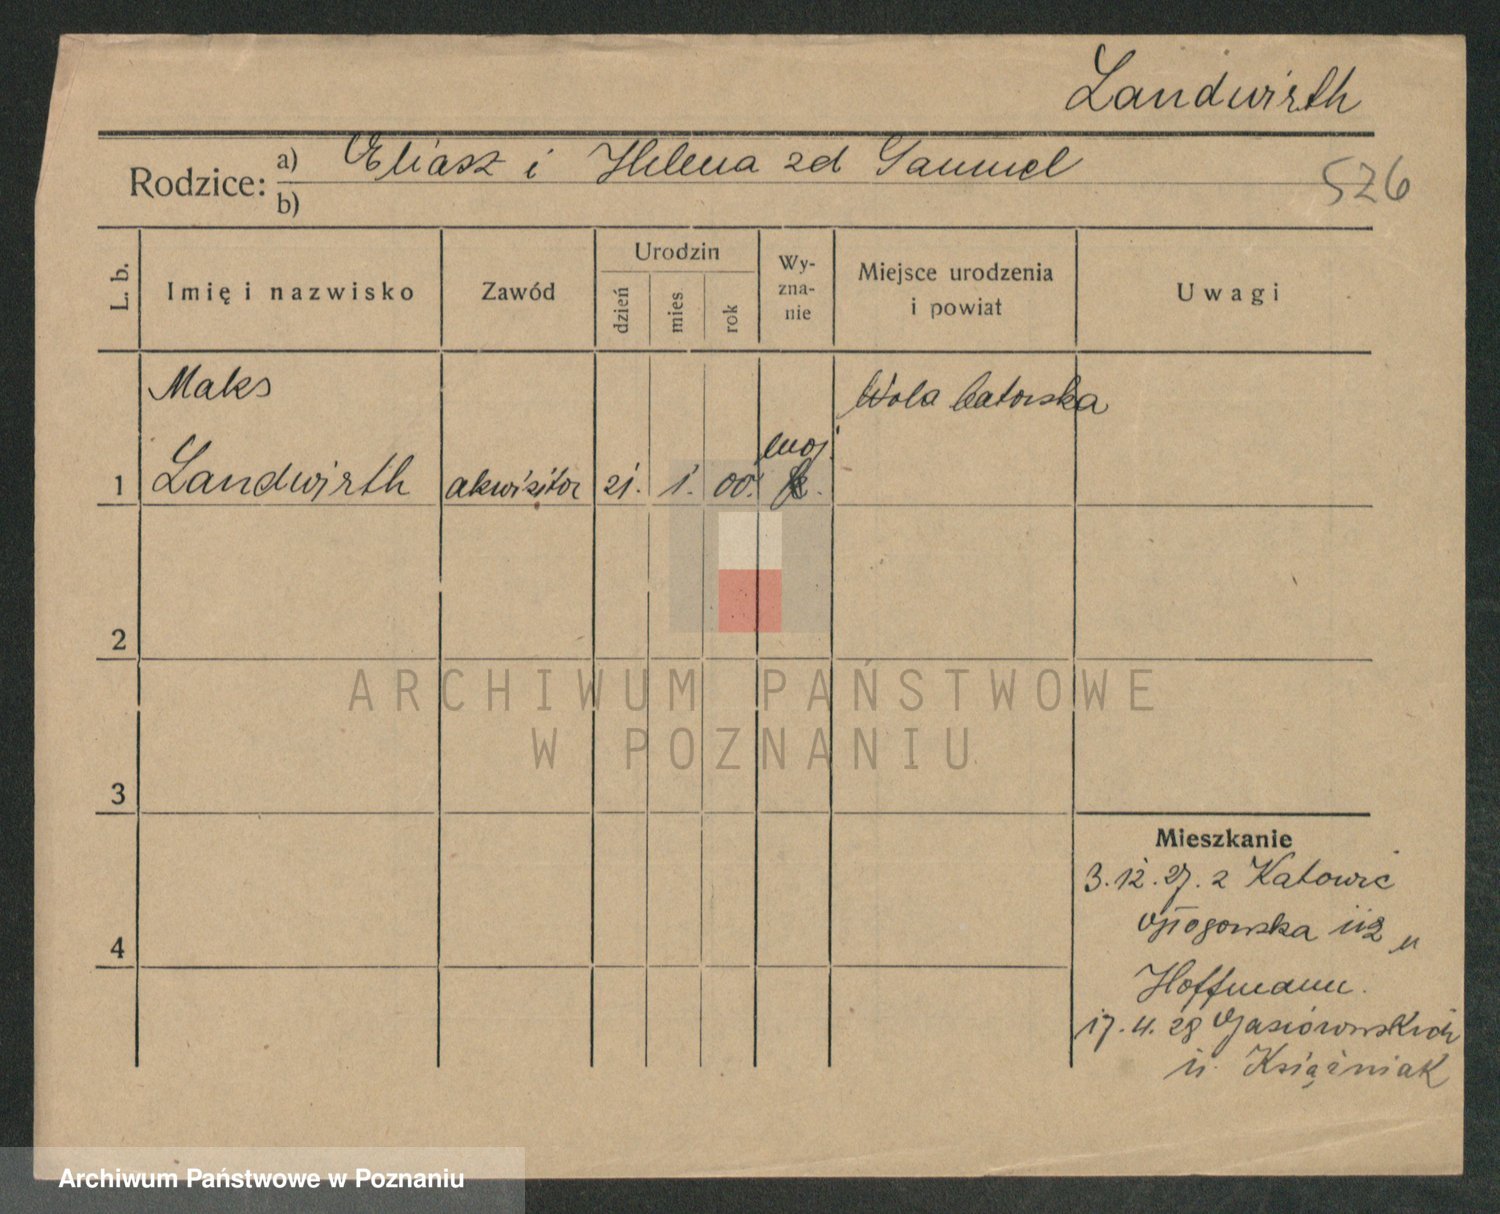 Landwirth
Rodzice: a) Eliasz i Helena zd Samuel
b)
526
L. b.
Imię i nazwisko
Zawód
Urodzin
dzień
mies
rok
Wy-
zna-
nie
Miejsce urodzenia
i powiat
Uwagi
Maks
Wola batorska
moj.
1 Landwirth akwizitor 21. 1. 00.
2
3
4
Mieszkanie
3.12.27. z Katowic
Hoffmann.
17.4.28 Gąsiorowskich
11. Książniak
ARCHIWUM PAŃSTWOWE
W POZNANIU
Archiwum Państwowe w Poznaniu